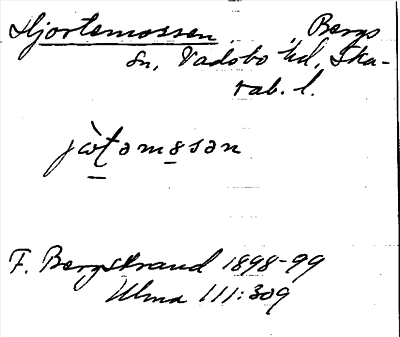 Hjortemossen, Bergs
sn, Vadsbo hd, Ska-
rab. l.
jòtəmssən
F. Bergstrand 1898-99
Ulma 111:309